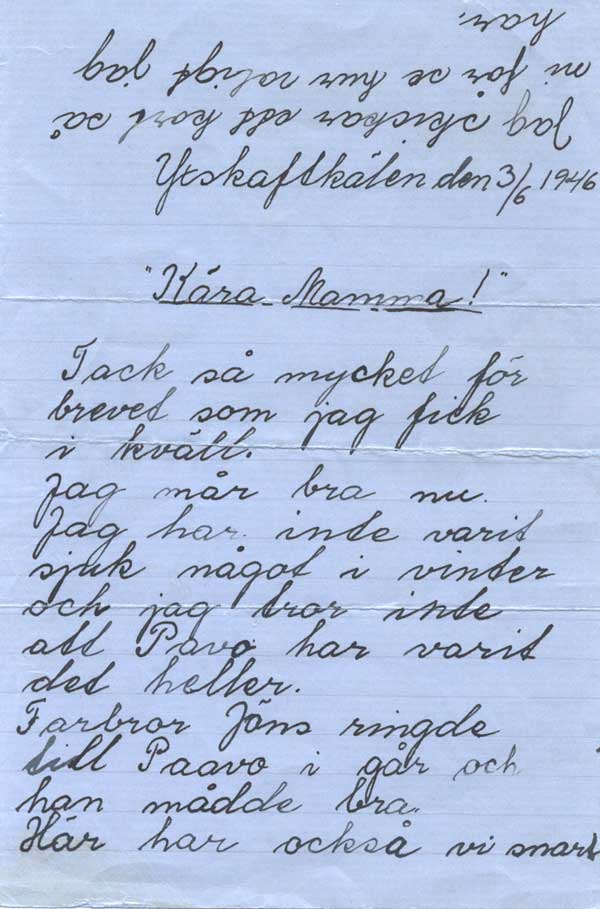 Jag skickar ett kort så
ni får se hur roligt jag
har.
Yxskaftkälen den 3/6 1946
"Kära Mamma!"
Tack så mycket för
brevet som jag fick
i kväll.
Jag mår bra nu.
Jag har inte varit
sjuk något i vinter
och jag tror inte
att Pavo har varit
det heller.
Farbror Jöns ringde
till Paavo i går och
han mådde bra.
Här har också vi snart